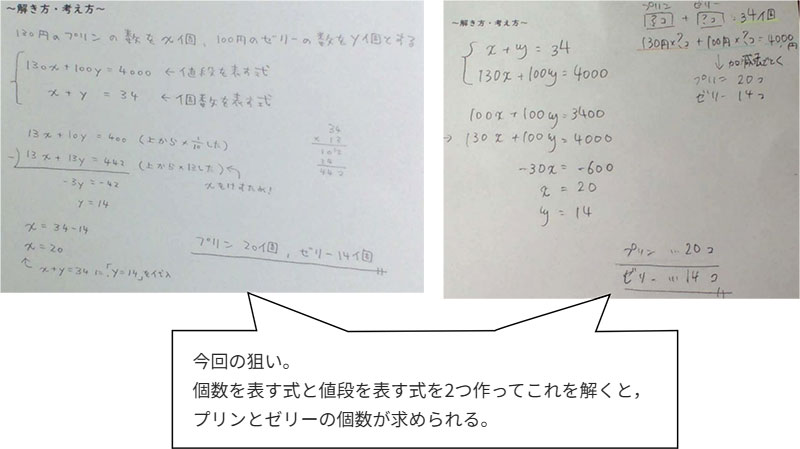 ～解き方・考え方～
130円のプリンの数をx個，100円のゼリーの数をy個とする
130x+100y=4000 ←値段を表す式
x+y=34 ←個数を表す式
13x+10y=400 (上から×1/10した)
-)13x+13y=442 (上から×13した)
-3y=-42
xをけすため!
y=14
34
×13
102
34
442
x=34-14
x=20
x+y=34に「y=14」を代入
プリン 20個，ゼリー14個
～解き方・考え方～
プリン ゼリー
?コ + ?コ = 34個
130円×?コ+100円×?コ=4000円
↓加減法でとく
プリン 20コ
ゼリー 14コ
x+y=34
130x+100y=4000
100x+100y=3400
→130x+100y=4000
-30x=-600
x=20
y=14
プリン…20コ
ゼリー…14コ
今回の狙い。
個数を表す式と値段を表す式を2つ作ってこれを解くと，
プリンとゼリーの個数が求められる。